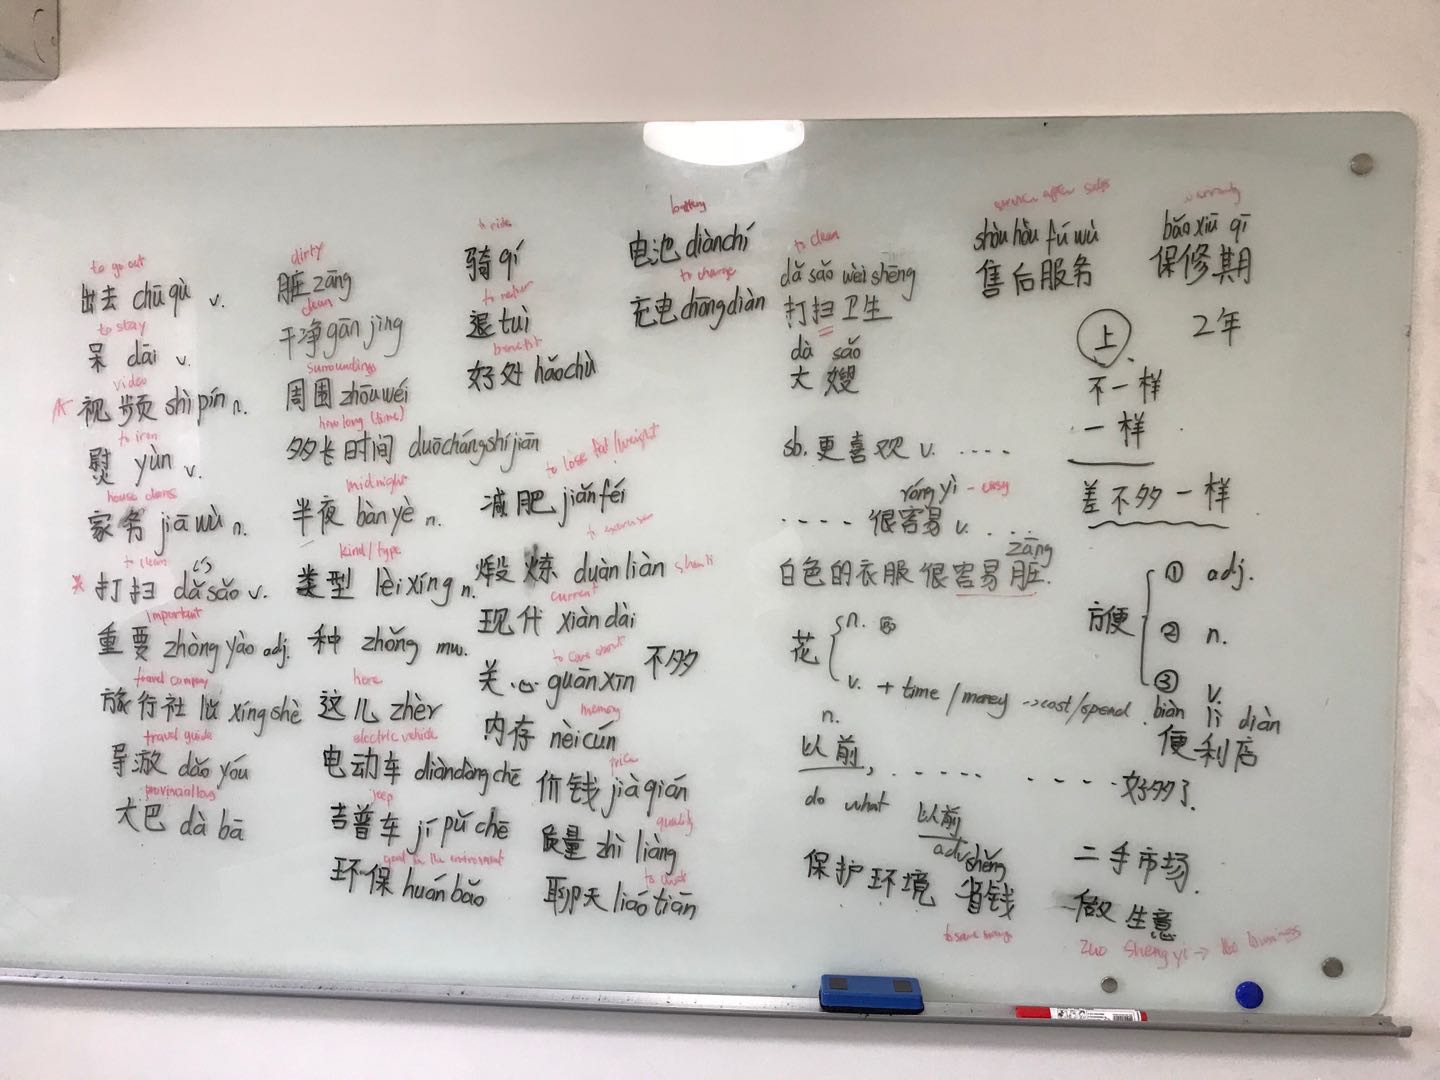 to go out
出去 chū qù v.
to stay
呆 dāi v.
video
视频 shì pín n.
to iron
熨 yùn v.
家务 jiā wù n.
to clean
打扫 dǎ sǎo v.
important
重要 zhòng yào adj.
travel company
旅行社 lǚ xíng shè
travel guide
导游 dǎo yóu
大巴 dà bā
dirty
脏 zāng
clean
干净 gān jìng
surroundings
周围 zhōu wéi
how long (time)
多长时间 duō cháng shí jiān
midnight
半夜 bàn yè n.
kind/type
类型 lèi xíng n.
种 zhǒng mw.
here
这儿 zhèr
electric vehicle
电动车 diàn dòng chē
jeep
吉普车 jí pǔ chē
good for the environment
环保 huán bǎo
to ride
骑 qí
to return
退 tuì
benefit
好处 hǎo chù
to lose fat/weight
减肥 jiǎn féi
煅炼 duàn liàn
current
现代 xiàn dài
to care about
关心 guān xīn
不多
memory
内存 nèi cún
price
价钱 jià qián
quality
质量 zhì liàng
聊天 liáo tiān
battery
电池 diàn chí
to charge
充电 chōng diàn
to clean
dǎ sǎo wèi shēng
打扫卫生
dà sǎo
大嫂
sb. 更喜欢 v. ....
róng yì - easy
.... 很容易 v. ...
zāng
白色的衣服很容易脏.
花
n.
v. + time / money → cost/spend
n.
以前, ..... .... 好多了.
do what 以前
adv
shěng
保护环境 省钱
to save money
service after sales
shòu hòu fú wù
售后服务
warranty
bǎo xiū qī
保修期
2年
上
不一样
一样
差不多一样
方便
① adj.
② n.
③ v.
biàn lì diàn
便利店
二手市场.
做生意
zuo sheng yi → do business